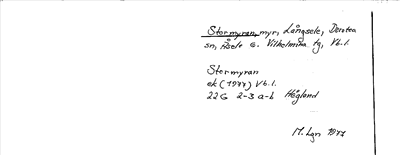 Stormyran, myr, Långsele, Dorotea
sn, Åsele o. Vilhelmina tg, Vb.l.
Stormyran
ek (1977) Vb.l.
22G 2-3 a-b Högland
M. Lgn 1977